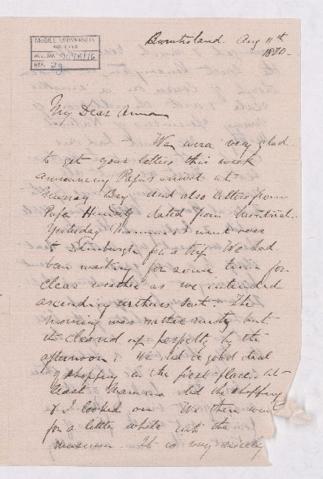 McGILL UNIVERSITY
ARCHIVES
ACC. NO.
REF. 29
Burntisland. Aug 11th
1880.
My Dear Anna
We were very glad
to get your letters this week
announcing Papa's arrival at
Murray Bay and also letters from
Papa dated from Montreal.
Yesterday Mamma & I went over
to Edinburgh for a trip. We had
been waiting for some time for
clear weather as we intended
ascending Arthur's Seat. The
morning was rather misty but
it cleared off perfectly by the
afternoon. We did a good deal
of shopping in the first place, at
least Mamma did the shopping
& I looked on. We then went
for a little while into the
museum. It is very nicely